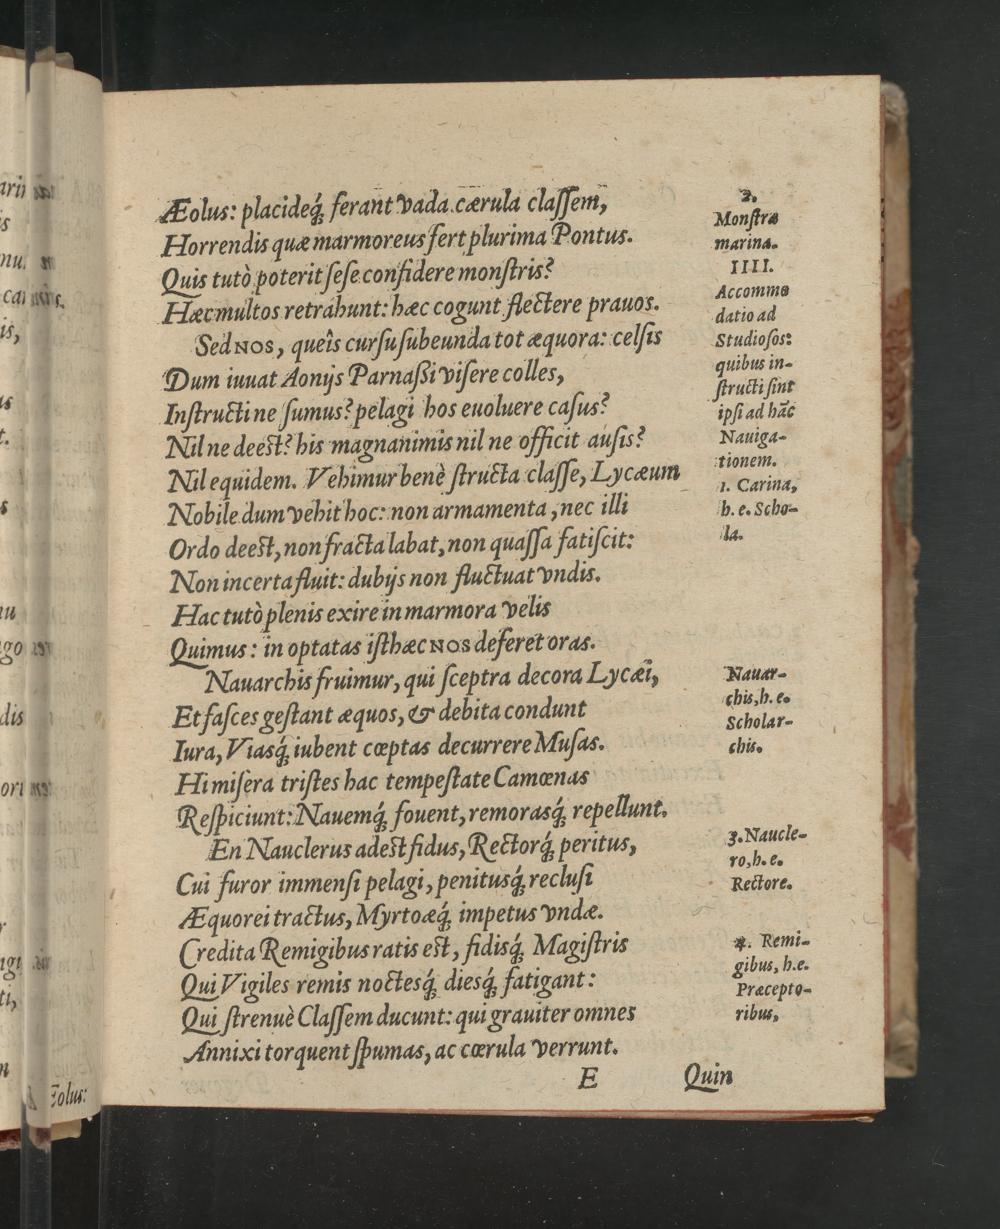 Æolus: placideq́; ferant vada cærula claſſem,
Horrendis quæ marmoreus fert plurima Pontus.
Quis tutò poterit ſeſe confidere monſtris?
Hæc multos retrahunt: hæc cogunt flectere prauos.
Sed NOS, queîs curſu ſubeunda tot æquora: celſis
Dum iuuat Aonijs Parnaßi viſere colles,
Inſtructi ne ſumus? pelagi hos euoluere caſus?
Nil ne deest? his magnanimis nil ne officit auſis?
Nil equidem. Vehimur benè ſtructa claſſe, Lycæum
Nobile dum vehit hoc: non armamenta, nec illi
Ordo deest, non fracta labat, non quaſſa fatiſcit:
Non incerta fluit: dubijs non fluctuat vndis.
Hac tutò plenis exire in marmora velis
Quimus: in optatas iſthæc NOS deferet oras.
Nauarchis fruimur, qui ſceptra decora Lycæi,
Et faſces geſtant æquos, & debita condunt
Iura, Viasq́; iubent cœptas decurrere Muſas.
Hi miſera triſtes hac tempeſtate Camœnas
Reſpiciunt: Nauemq́; fouent, remorasq́; repellunt.
En Nauclerus adest fidus, Rectorq́; peritus,
Cui furor immenſi pelagi, penitusq́; recluſi
Æquorei tractus, Myrtoæq́; impetus vndæ.
Credita Remigibus ratis est, fidisq́; Magiſtris
Qui Vigiles remis noctesq́; diesq́; fatigant:
Qui ſtrenuè Claſſem ducunt: qui grauiter omnes
Annixi torquent ſpumas, ac cœrula verrunt.
E Quin
2.
Monſtra
marina.
IIII.
Accommo
datio ad
Studioſos:
quibus in-
ſtructi ſint
ipſi ad hāc
Nauiga-
tionem.
1. Carina,
h. e. Scho-
la.
Nauar-
chis, h. e.
Scholar-
chis.
3. Naucle-
ro, h. e.
Rectore.
4. Remi-
gibus, h.e.
Præcepto-
ribus,